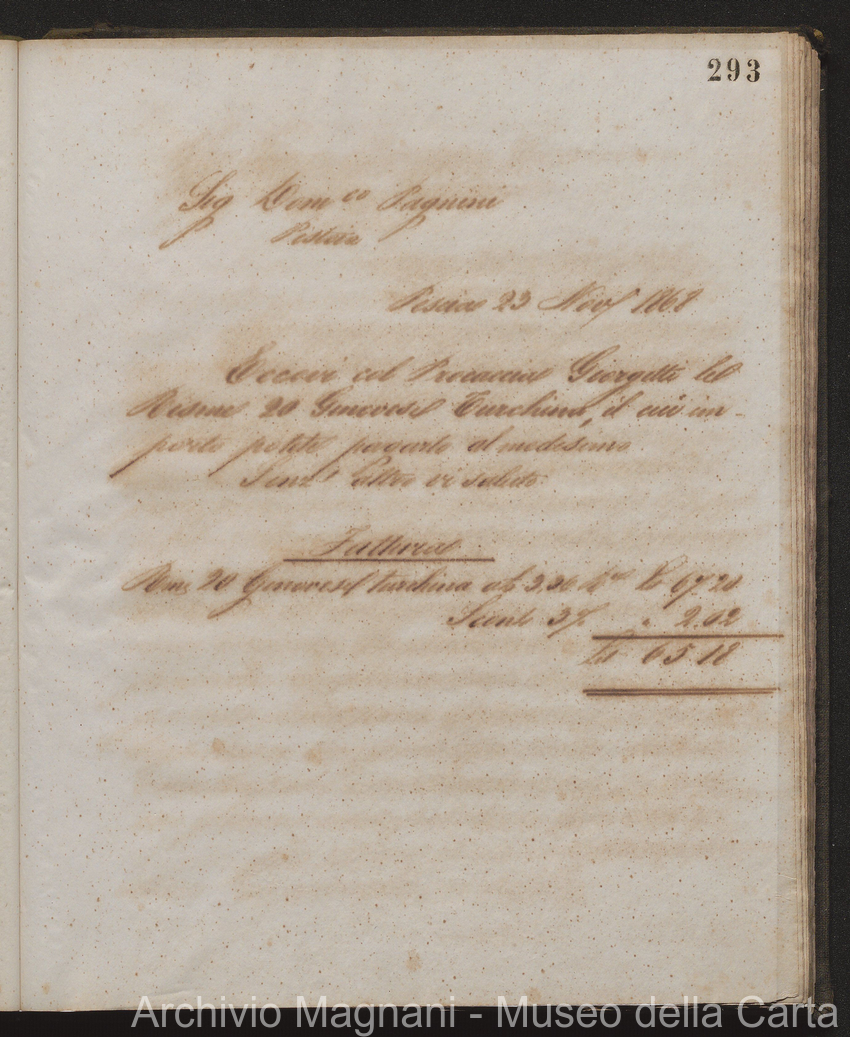 293
Sig Dom.co Pagnini
Pistoia
Pescia 23 Nov 1868
Eccovi col Procaccia Giorgetti le
Risme 20 Genovese Turchina, il cui im-
porto potete pagarlo al medesimo
Senz' altro vi saluto
Fattura
Rme 20 Genovese turchina a 3.36 67.20
Sconto 3% " 2.02
65.18
Archivio Magnani - Museo della Carta